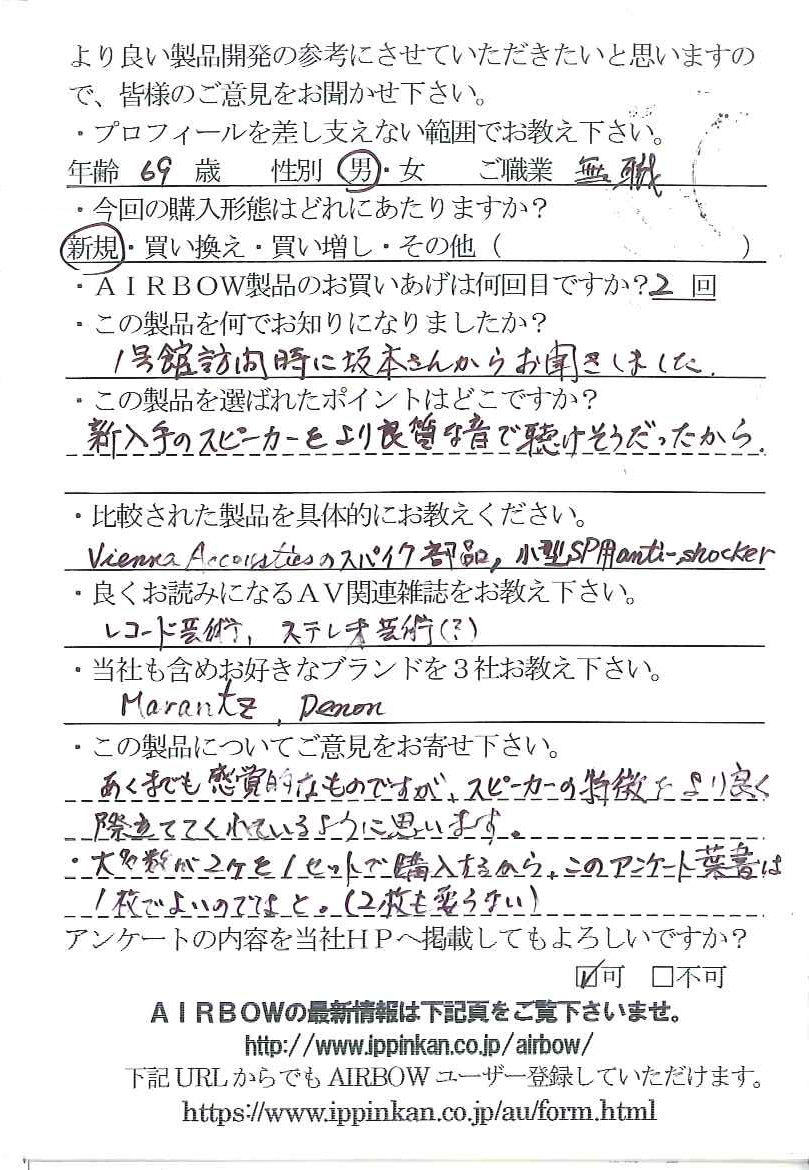 より良い製品開発の参考にさせていただきたいと思いますの
で、皆様のご意見をお聞かせ下さい。
・プロフィールを差し支えない範囲でお教え下さい。
年齢 69 歳 性別 男・女 ご職業 無職
・今回の購入形態はどれにあたりますか？
新規・買い換え・買い増し・その他（ ）
・ＡＩＲＢＯＷ製品のお買いあげは何回目ですか？2 回
・この製品を何でお知りになりましたか？
1号館訪問時に坂本さんからお聞きしました.
・この製品を選ばれたポイントはどこですか？
新入手のスピーカーをより良質な音で聴けそうだったから.
・比較された製品を具体的にお教えください。
Vienna Accoustiesのスパイク部品, 小型SP用anti-shocker
・良くお読みになるＡＶ関連雑誌をお教え下さい。
レコード芸術, ステレオ芸術(?)
・当社も含めお好きなブランドを３社お教え下さい。
Marantz, Denon
・この製品についてご意見をお寄せ下さい。
あくまでも感覚的なものですが、スピーカーの特徴をより良く
際立ててくれているように思います。
・大多数が2ヶを1セットで購入するから、このアンケート葉書は
1枚でよいのではと。(2枚も要らない)
アンケートの内容を当社ＨＰへ掲載してもよろしいですか？
☑可 □不可
ＡＩＲＢＯＷの最新情報は下記頁をご覧下さいませ。
http://www.ippinkan.co.jp/airbow/
下記 URL からでも AIRBOW ユーザー登録していただけます。
https://www.ippinkan.co.jp/au/form.html